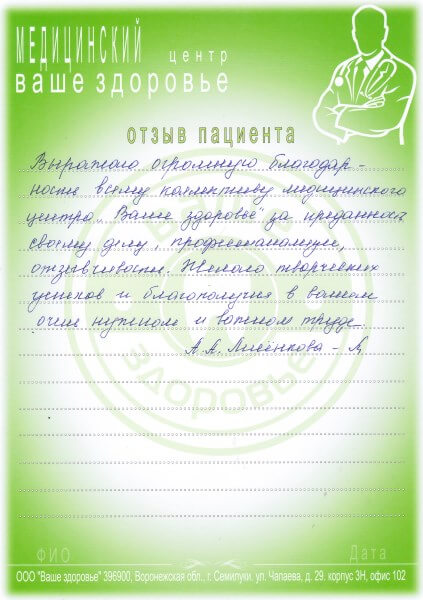 МЕДИЦИНСКИЙ центр
ваше здоровье
отзыв пациента
Выражаю огромную благодар-
ность всему коллективу медицинского
центра „Ваше здоровье" за преданность
своему делу, профессионализм,
отзывчивость. Желаю творческих
успехов и благополучия в вашем
очень нужном и важном труде.
А.А. Лисёнкова -
ЗДОРОВЬЕ
ФИО Дата
ООО "Ваше здоровье" 396900, Воронежская обл., г. Семилуки. ул. Чапаева, д. 29. корпус 3Н, офис 102